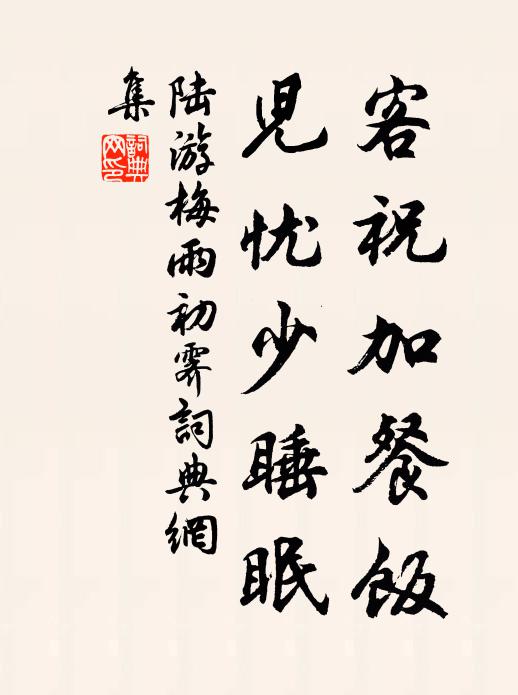 客祝加餐飯
児忧少睡眠
陆游梅雨初霽詞典網
集
詞典網印